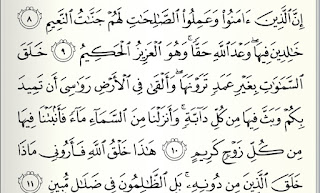 إِنَّ ٱلَّذِينَ ءَامَنُوا۟ وَعَمِلُوا۟ ٱلصَّـٰلِحَـٰتِ لَهُمْ جَنَّـٰتُ ٱلنَّعِيمِ ٨
خَـٰلِدِينَ فِيهَا ۖ وَعْدَ ٱللَّهِ حَقًّا ۚ وَهُوَ ٱلْعَزِيزُ ٱلْحَكِيمُ ٩ خَلَقَ
ٱلسَّمَـٰوَٰتِ بِغَيْرِ عَمَدٍ تَرَوْنَهَا ۖ وَأَلْقَىٰ فِى ٱلْأَرْضِ رَوَٰسِىَ أَن تَمِيدَ
بِكُمْ وَبَثَّ فِيهَا مِن كُلِّ دَآبَّةٍ ۚ وَأَنزَلْنَا مِنَ ٱلسَّمَآءِ مَآءً فَأَنۢبَتْنَا فِيهَا
مِن كُلِّ زَوْجٍ كَرِيمٍ ١٠ هَـٰذَا خَلْقُ ٱللَّهِ فَأَرُونِى مَاذَا
خَلَقَ ٱلَّذِينَ مِن دُونِهِۦ ۚ بَلِ ٱلظَّـٰلِمُونَ فِى ضَلَـٰلٍ مُّبِينٍ ١١